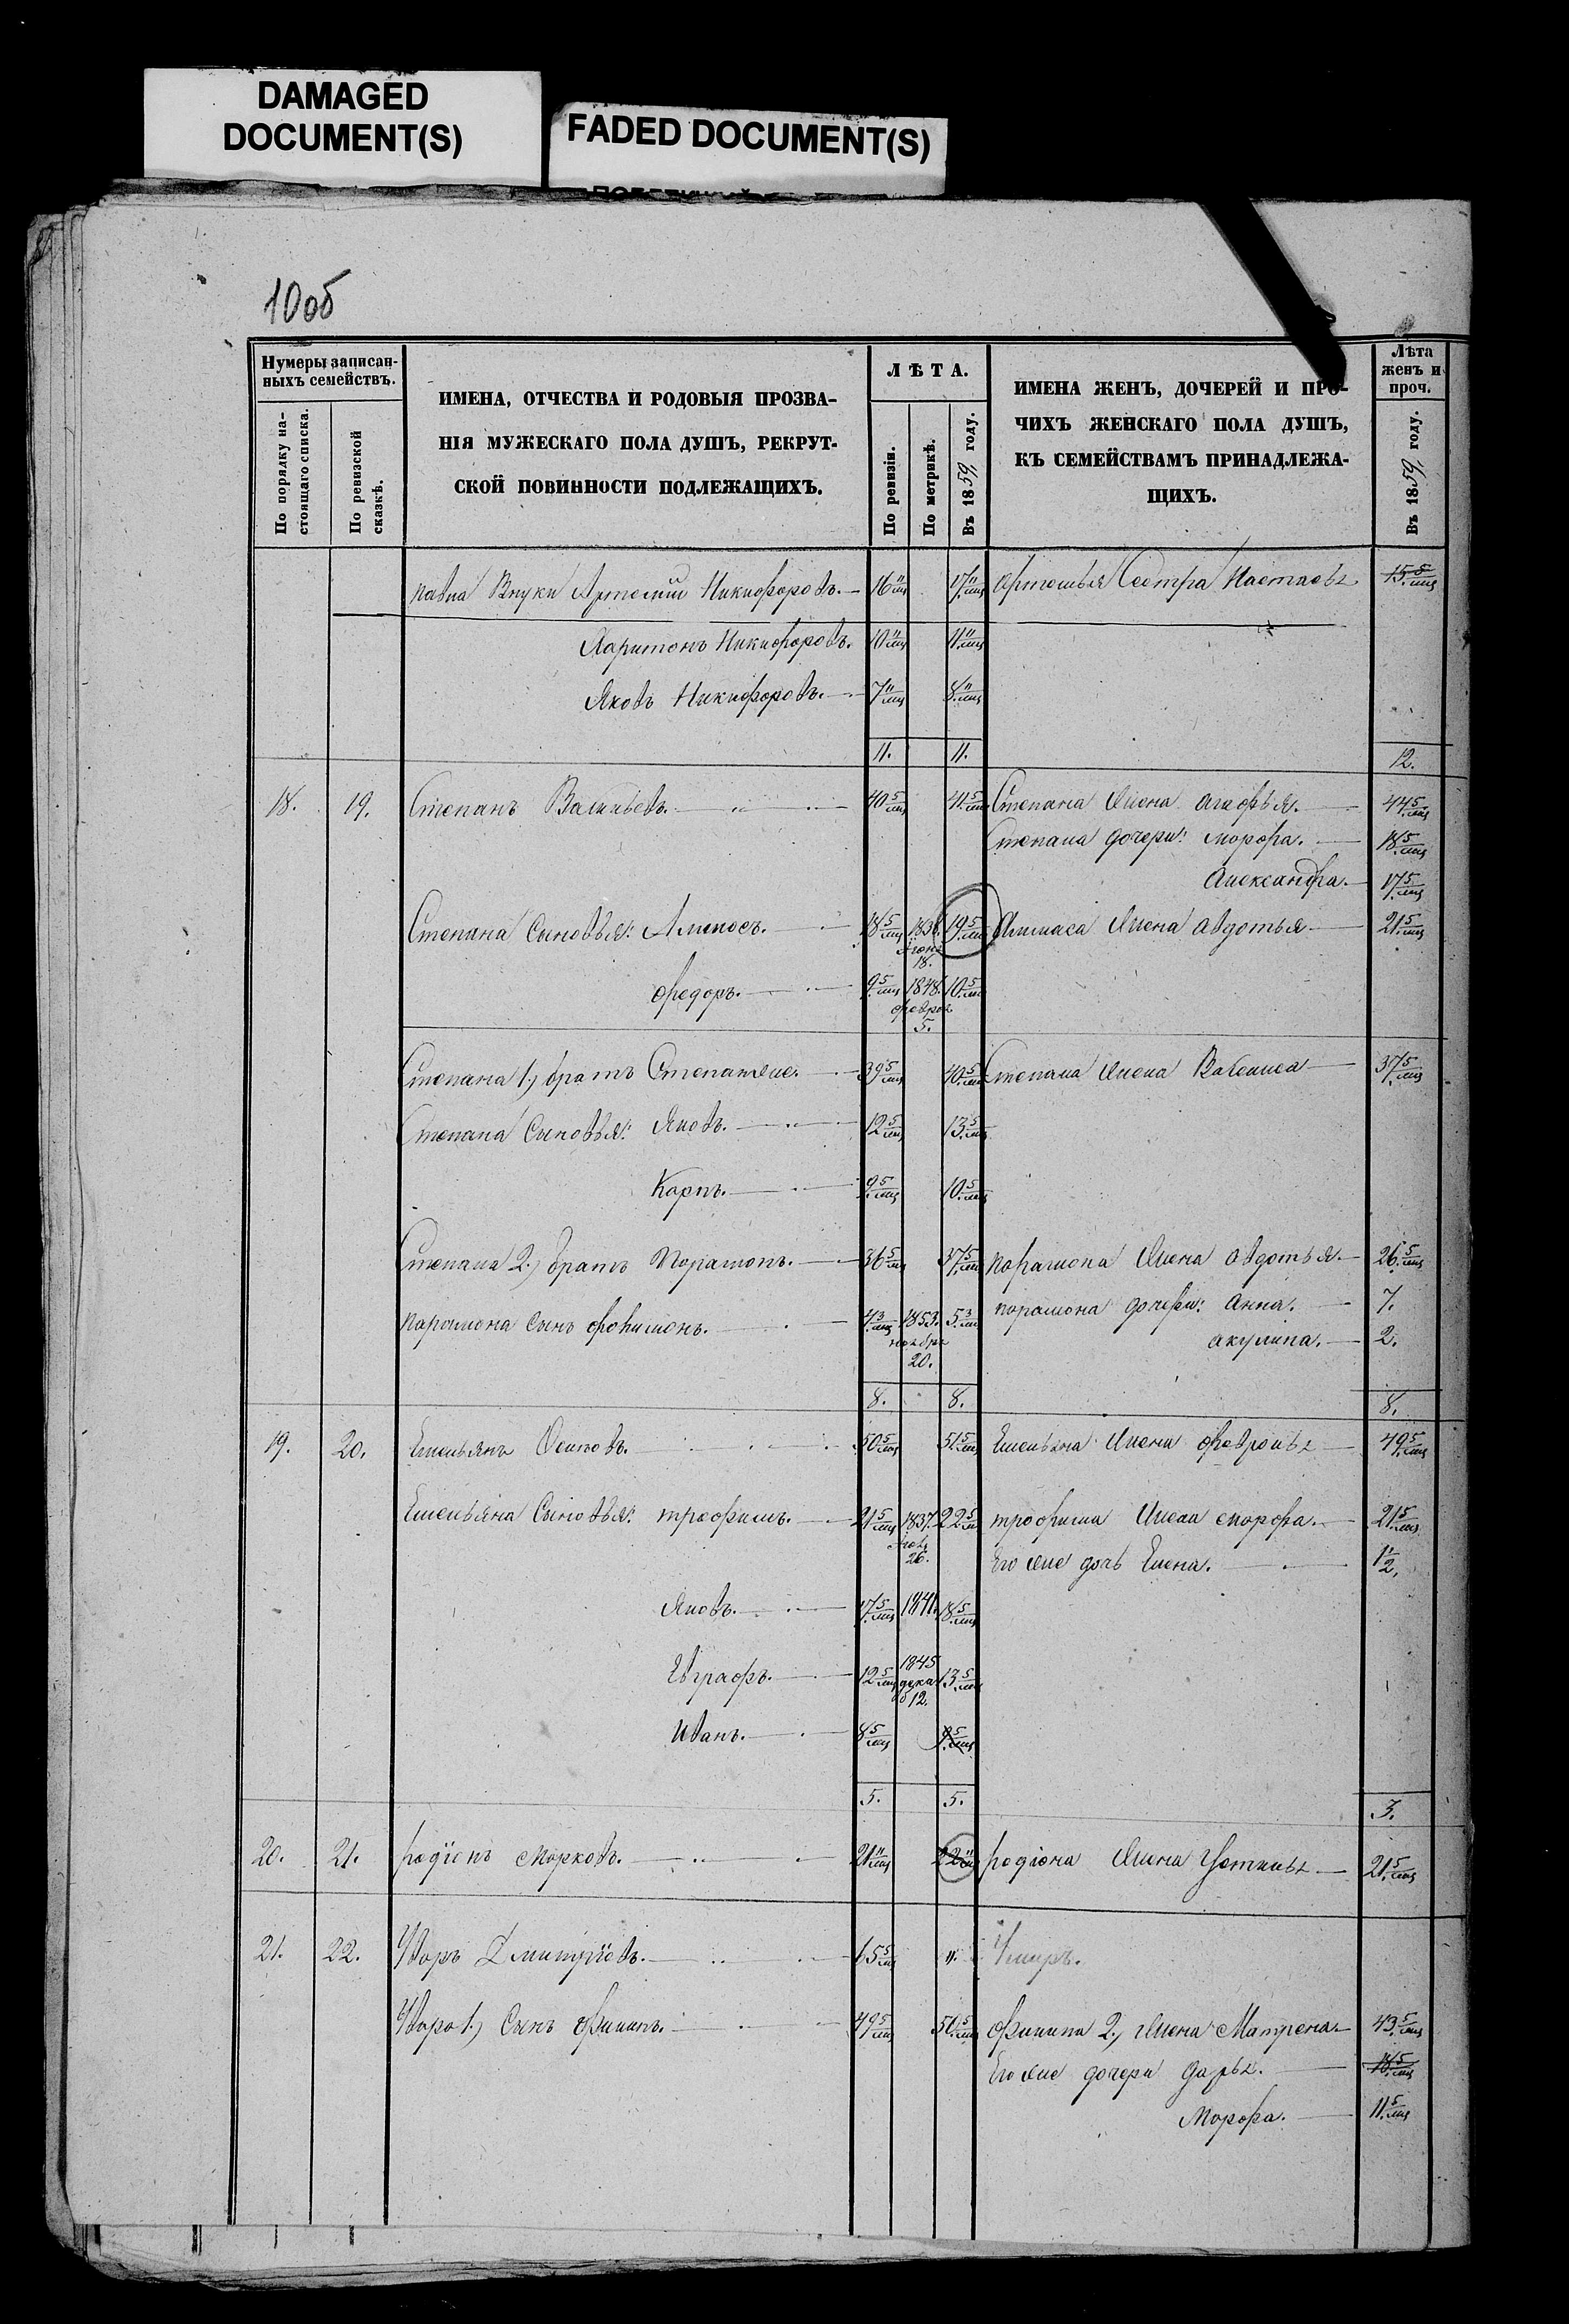 DAMAGED
DOCUMENT(S)
FADED DOCUMENT(S)
10об
Нумеры записан-
ныхъ семействъ.
По порядку на-
стоящаго списка.
По ревизской
сказкѣ.
ИМЕНА, ОТЧЕСТВА И РОДОВЫЯ ПРОЗВА-
НІЯ МУЖЕСКАГО ПОЛА ДУШЪ, РЕКРУТ-
СКОЙ ПОВИННОСТИ ПОДЛЕЖАЩИХЪ.
ЛѢТА.
По ревизіи.
По метрикѣ.
Въ 1859 году.
ИМЕНА ЖЕНЪ, ДОЧЕРЕЙ И ПРО-
ЧИХЪ ЖЕНСКАГО ПОЛА ДУШЪ,
КЪ СЕМЕЙСТВАМЪ ПРИНАДЛЕЖА-
ЩИХЪ.
Лѣта
женъ и
проч.
Въ 1859 году.
павла Внуки Артемій Никифоровъ. 16 11/мц 17 11/мц Артемья Сестра Настасья 15 5/мц
Харитонъ Никифоровъ. 10 11/мц 11 11/мц
Яковъ Никифоровъ. 7 11/мц 8 11/мц
11. 11. 12.
18. 19. Степанъ Васильевъ. 40 5/мц 41 5/мц Степана Жена агафья. 44 5/мц
Степана дочери: морфа. 18 5/мц
Александра. 17 5/мц
Степана Сыновья: Алмпосъ. 18 5/мц 1838. 18. 19 5/мц Жена авдотья 21 5/мц
федоръ. 9 5/мц 1848. феврал 5. 10 5/мц
Степана 1.) братъ Степанже. 39 5/мц 40 5/мц Степана Жена 37 5/мц
Степана Сыновья: Яковъ. 12 5/мц 13 5/мц
Карпъ. 9 5/мц 10 5/мц
Степана 2.) братъ Парамонъ. 36 5/мц 37 5/мц парамона Жена авдотья. 26 5/мц
парамона Сынъ филимонъ. 4 3/мц 1853. ноября 20. 5 3/мц парамона дочери: анна. 7.
акулина. 2.
8. 8. 8.
19. 20. Емельянъ Осиповъ. 50 5/мц 51 5/мц Емельяна Жена февронья 49 5/мц
Емельяна Сыновья: трофимъ. 21 5/мц 1837. 26. 22 5/мц трофима Жена морфа. 21 5/мц
Его же дочь Елена. 1/2.
Яковъ. 17 5/мц 1841. 18 5/мц
Евграфъ. 12 5/мц 1845 дека 12. 13 5/мц
Иванъ. 8 5/мц 9 5/мц
5. 5. 3.
20. 21. родіонъ марковъ. 21 11/мц 22 11/мц родіона Жена Устинья 21 5/мц
21. 22. Уваръ Дмитріевъ. 65 5/мц ". Умеръ.
Увара 1.) Сынъ филипъ. 49 5/мц 50 5/мц филипа 2.) Жена Матрена 43 5/мц
Его же дочери дарья. 18 5/мц
Морфа. 11 5/мц